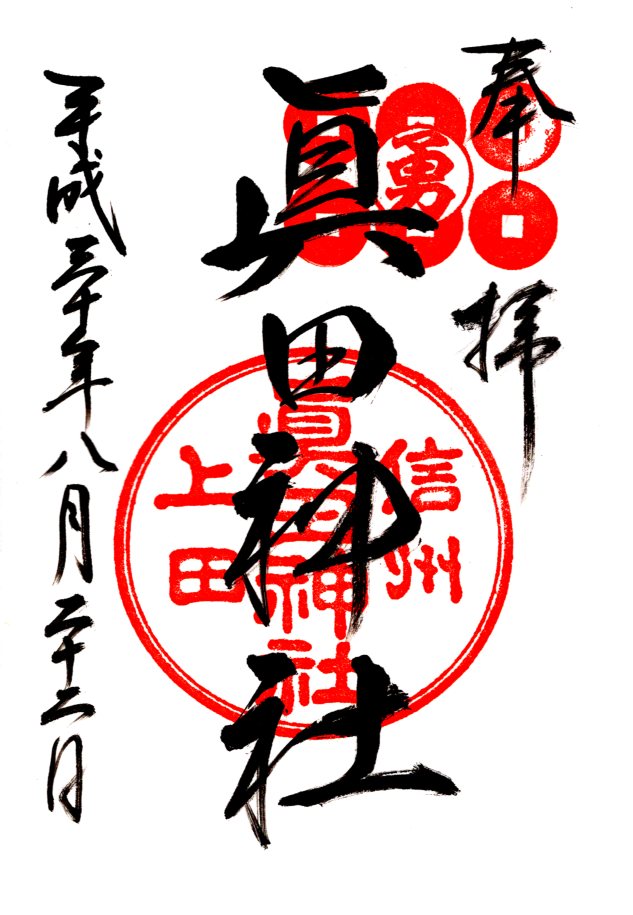 奉拝
勇
眞田神社
信州
眞田神社
上田
平成三十年八月二十二日